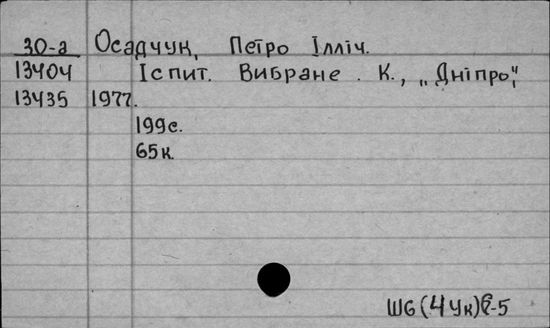 30-а Осадчук, Петро Ілліч.
13404 Іспит. Вибране. К., „Дніпро",
13435 1977.
199с.
65к.
Ш6(4Ук)6-5